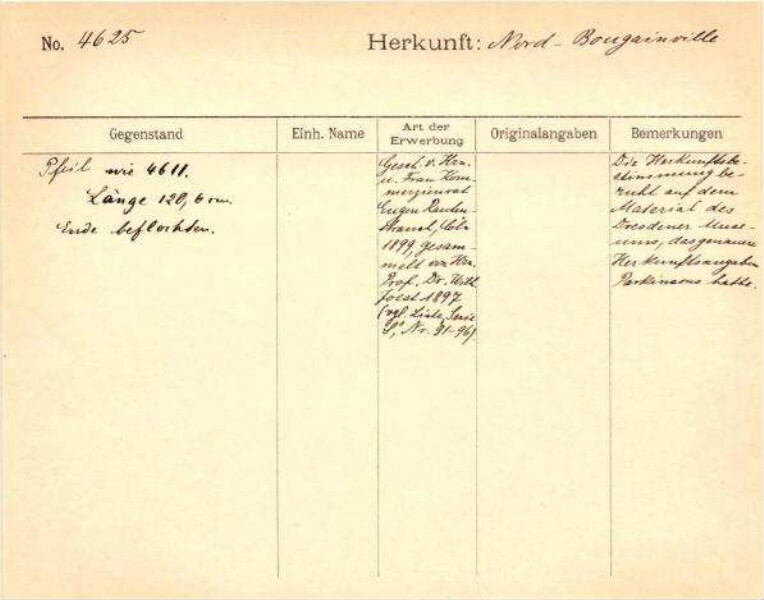 No. 4625
Herkunft: Nord-Bougainville
Gegenstand
Einh. Name
Art der
Erwerbung
Originalangaben
Bemerkungen
Pfeil wie 4611.
Länge 120,6 cm.
Ende beflochten.
Gesch. v. Hrn.
u. Frau Kom-
merzienrat
Eugen Rauten-
strauch, Cöln
1899, gesam-
melt von Hrn.
Prof. Dr. Wilh.
Joest 1897
(vgl. Liste, Serie
Nr. 91-96)
Die Herkunftsbe-
stimmung be-
ruht auf dem
Material des
Dresdener Muse-
ums, das genauere
Herkunftsangaben
Parkinsons hatte.